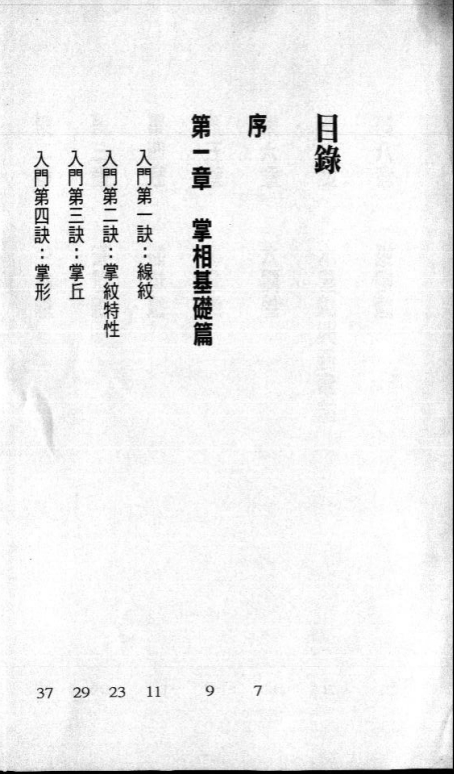 目錄
序 7
第一章 掌相基礎篇 9
入門第一訣：線紋 11
入門第二訣：掌紋特性 23
入門第三訣：掌丘 29
入門第四訣：掌形 37